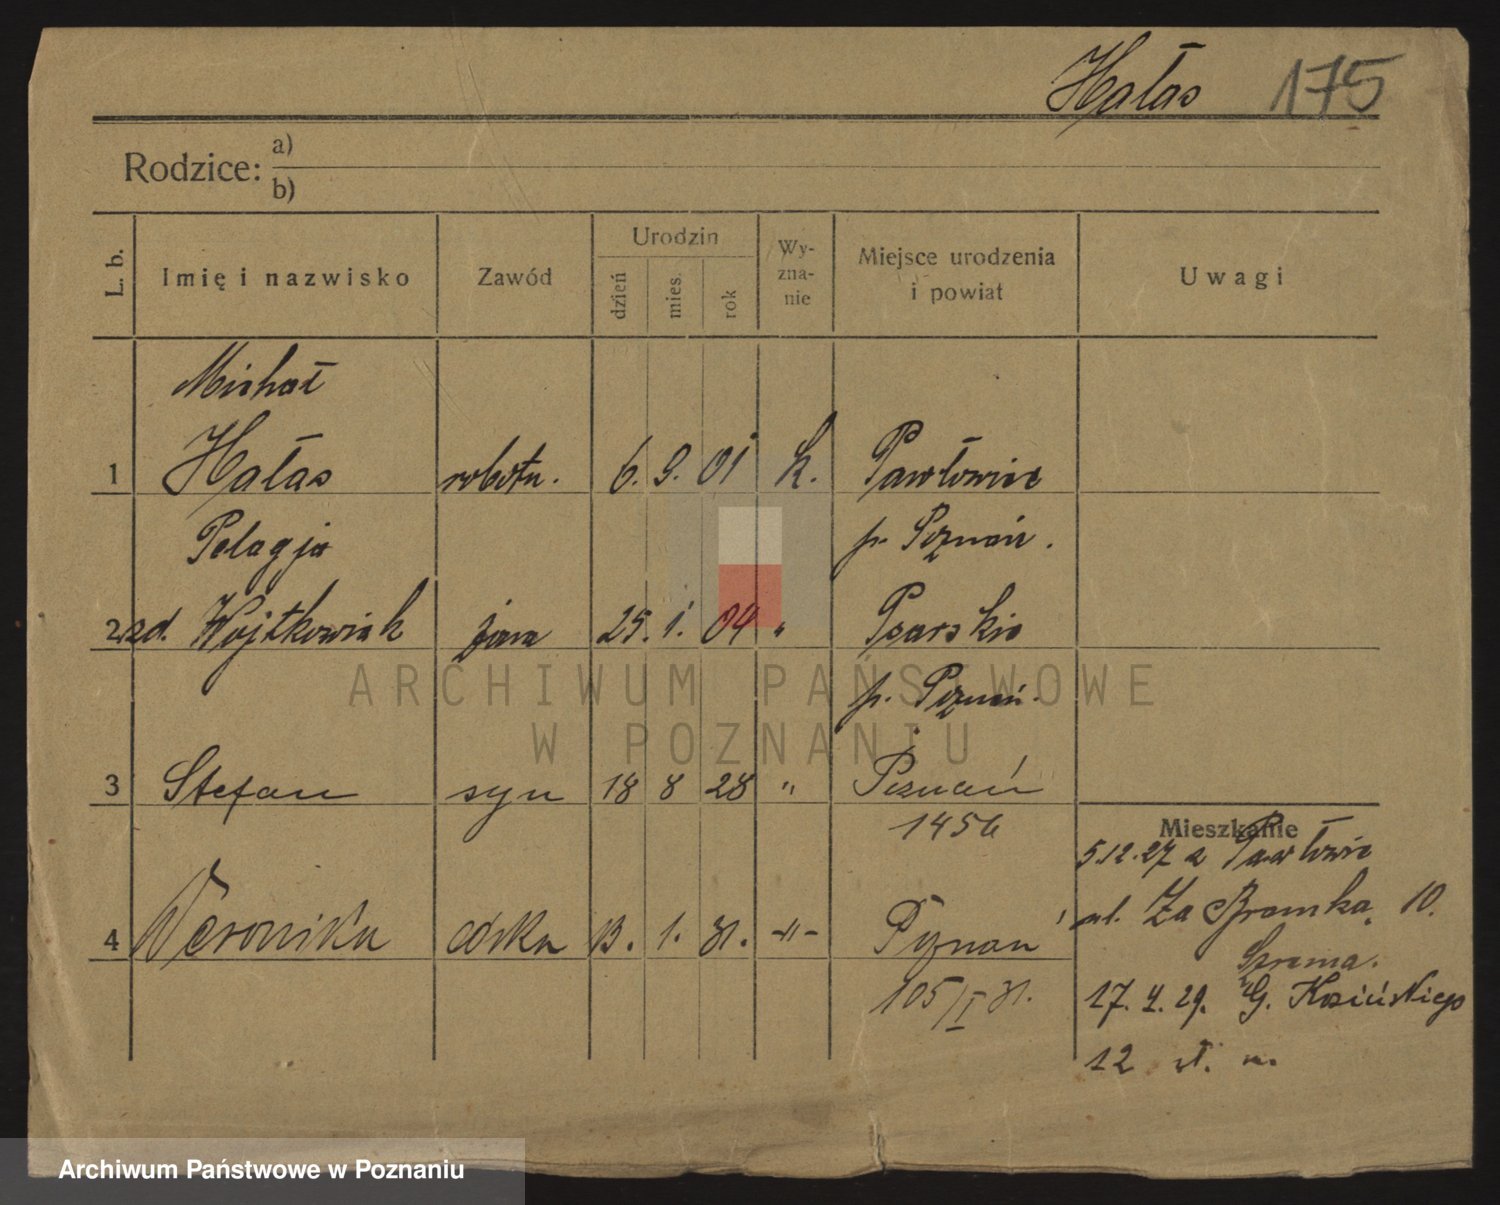 Hałas 175
Rodzice: a)
b)
L. b. Imię i nazwisko Zawód Urodzin dzień mies. rok Wy-zna-nie Miejsce urodzenia i powiat Uwagi
Michał
1 Hałas robotn. 6. 9. 01 k. Pawłowice
Pelagja p. Poznań.
2 zd. Wojtkowiak żona 25. 1. 04 " Psarskie
p. Poznań.
3 Stefan syn 18 8 28 " Poznań
1456
Mieszkanie
5.12.27 z Pawłowic
4 Weronika córka 13. 1. 31. -"- Poznań
ul. Za Bramką 10.
105/I 31.
Szrama.
17. 4. 29. G. Kosińskiego
12
ARCHIWUM PAŃSTWOWE
W POZNANIU
Archiwum Państwowe w Poznaniu